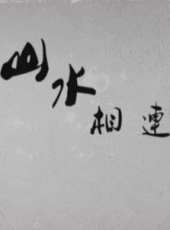 山水相連